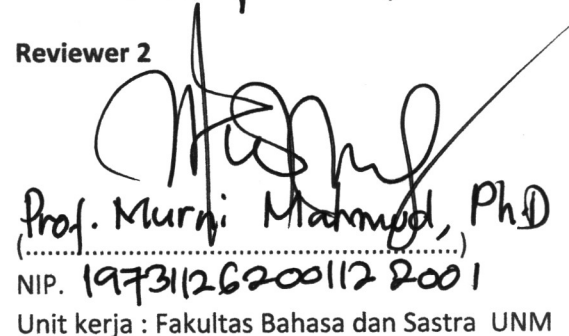 Reviewer 2
Prof. Murni Mahmud, Ph.D
(...............................................................)
NIP. 19731126200112 2001
Unit kerja : Fakultas Bahasa dan Sastra UNM